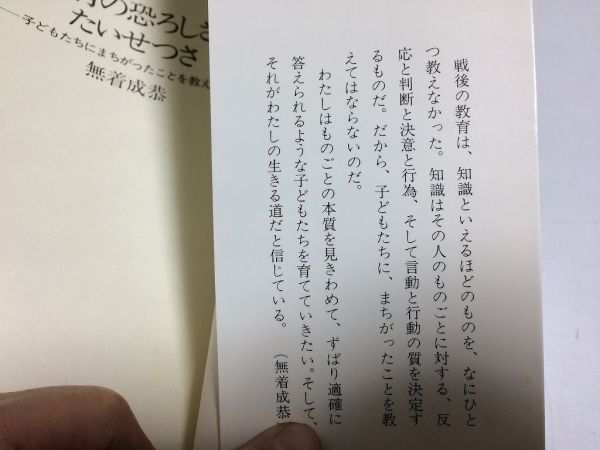 戦後の教育は、知識といえるほどのものを、なにひと
つ教えなかった。知識はその人のものごとに対する、反
応と判断と決意と行為、そして言動と行動の質を決定す
るものだ。だから、子どもたちに、まちがったことを教
えてはならないのだ。
わたしはものごとの本質を見きわめて、ずばり適確に
答えられるような子どもたちを育てていきたい。そして、
それがわたしの生きる道だと信じている。（無着成恭）
の恐ろしさ
たいせつさ
──子どもたちにまちがったことを教え
無着成恭